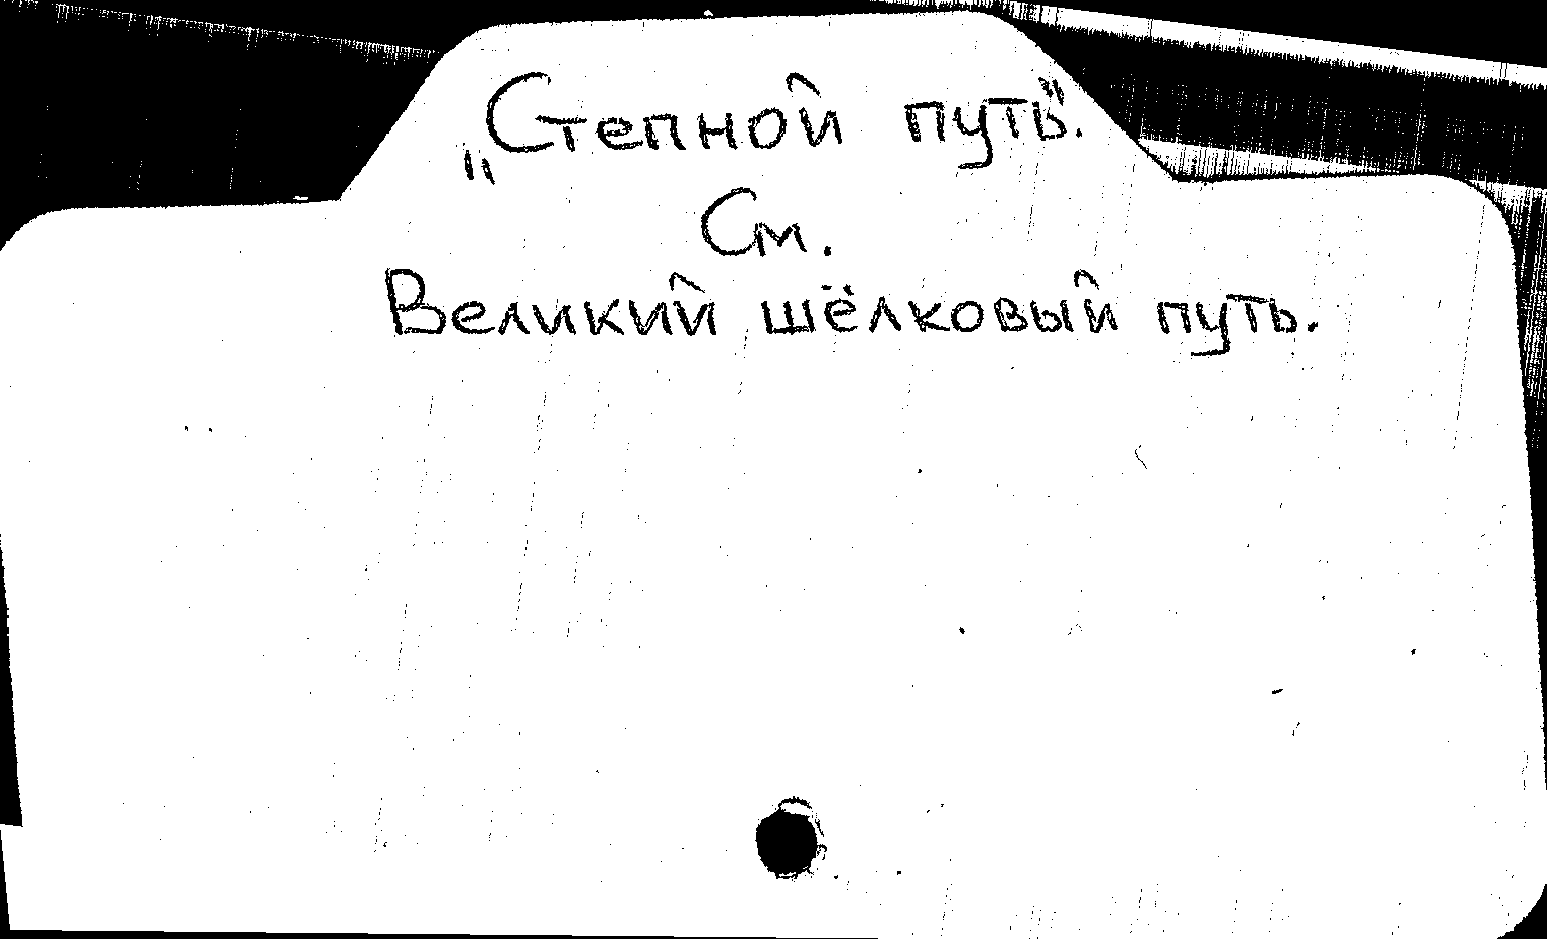 „Степной путь".
См.
Великий шёлковый путь.